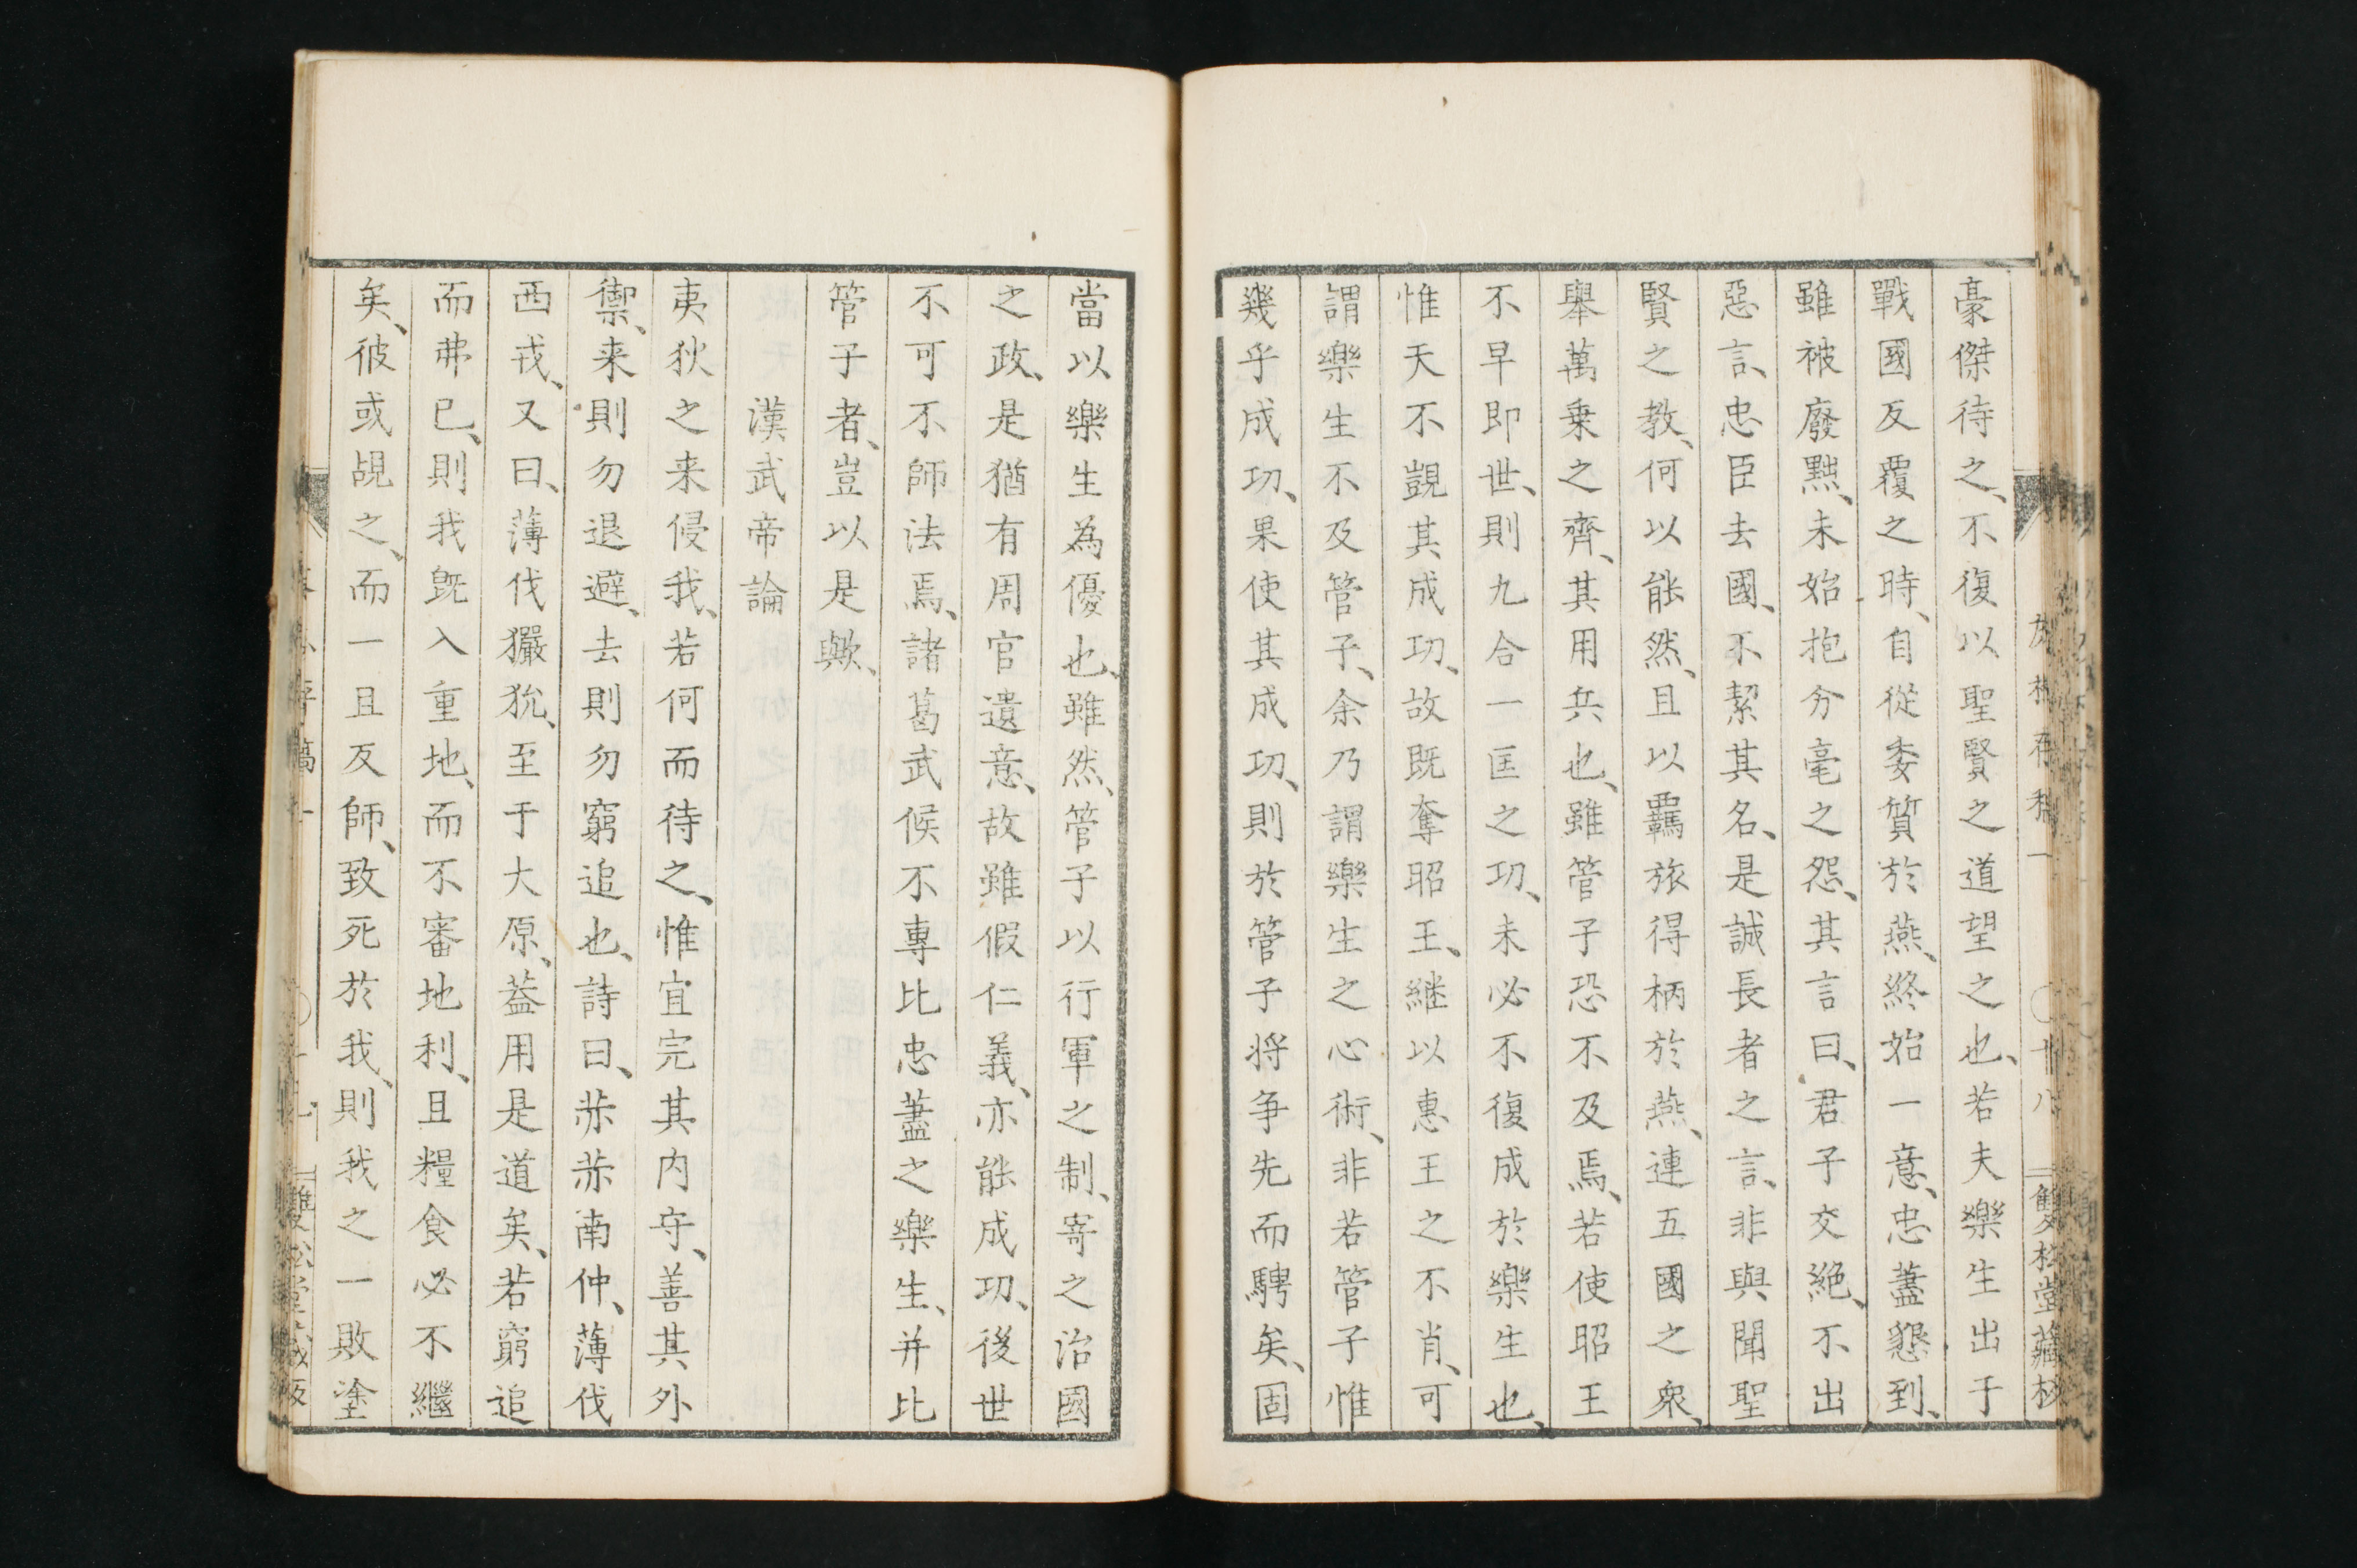 豪傑待之、不復以聖賢之道望之也、若夫樂生出于
戰國反覆之時、自從委質於燕、終始一意、忠藎懇到、
雖被廢黜、未始抱分毫之怨、其言曰、君子交絶、不出
惡言、忠臣去國、不潔其名、是誠長者之言、非與聞聖
賢之教、何以能然、且以羈旅得柄於燕、連五國之衆、
舉萬乗之齊、其用兵也、雖管子恐不及焉、若使昭王
不早即世、則九合一匡之功、未必不復成於樂生也、
惟天不覬其成功、故既奪昭王、継以惠王之不肖、可
謂樂生不及管子、余乃謂樂生之心術、非若管子惟
幾乎成功、果使其成功、則於管子将争先而騁矣、固
當以樂生為優也、雖然、管子以行軍之制、寄之治國
之政、是猶有周官遺意、故雖假仁義、亦能成功、後世
不可不師法焉、諸葛武侯不專比忠藎之樂生、并比
管子者、豈以是歟、
漢武帝論
夷狄之来侵我、若何而待之、惟宜完其内守、善其外
禦、来則勿退避、去則勿窮追也、詩曰、赤赤南仲、薄伐
西戎、又曰、薄伐玁狁、至于大原、葢用是道矣、若窮追
而弗已、則我既入重地、而不審地利、且糧食必不繼
矣、彼或覘之、而一旦反師、致死於我、則我之一敗塗